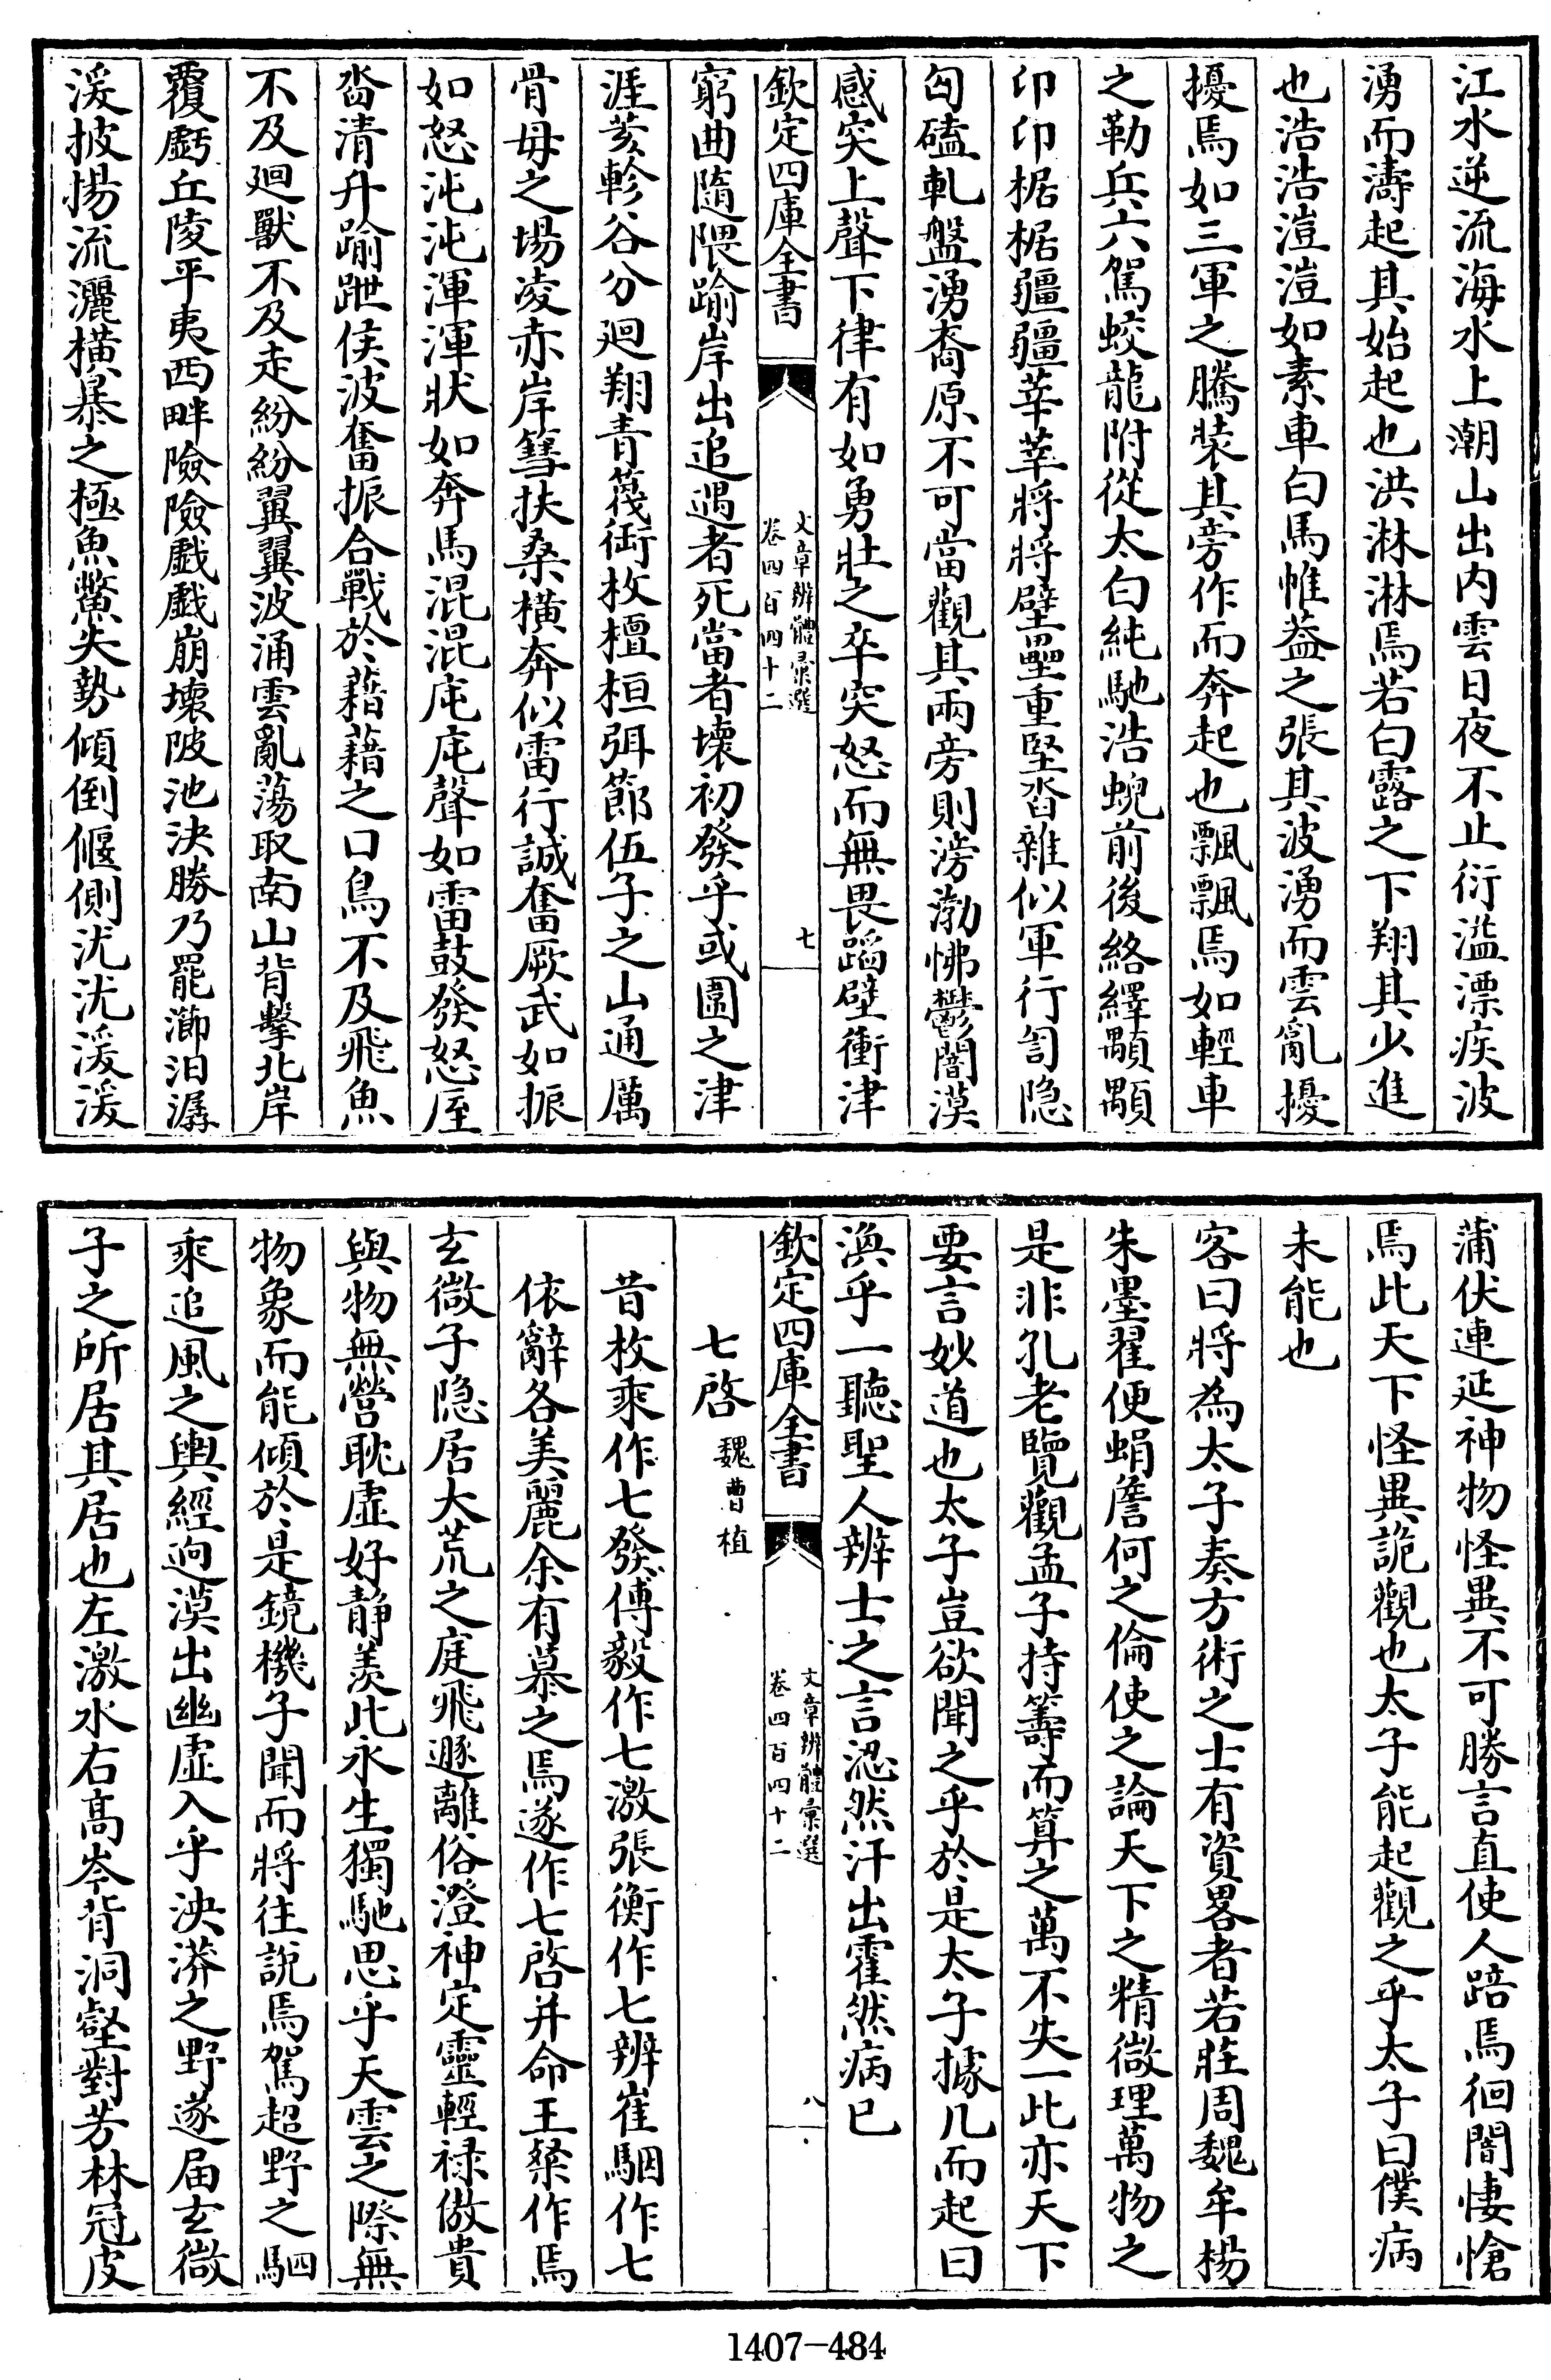 江水逆流海水上潮山出内雲日夜不止衍溢漂疾波
湧而濤起其始起也洪淋淋焉若白露之下翔其少進
也浩浩溰溰如素車白馬帷蓋之張其波湧而雲亂擾
擾焉如三軍之騰裝其旁作而奔起也飄飄焉如輕車
之勒兵六駕蛟龍附從太白純馳浩蜺前後絡繹顒顒
卬卬椐椐彊彊莘莘將將壁壘重堅沓雜似軍行訇隐
匈磕軋盤湧裔原不可當觀其兩旁則滂渤怫鬱闇漠
感突上聲下律有如勇壯之卒突怒而無畏蹈壁衝津
欽定四庫全書
文章辨體彙選
卷四百四十二
七
窮曲隨隈踰岸出追遇者死當者壞初發乎或圍之津
涯荄軫谷分廻翔青篾銜枚檀桓弭節伍子之山通厲
骨毋之場凌赤岸篲扶桑橫奔似雷行誠奮厥武如振
如怒沌沌渾渾狀如奔馬混混庉庉聲如雷鼓發怒庢
沓清升踰跇侯波奮振合戰於藉藉之口鳥不及飛魚
不及廻獸不及走紛紛翼翼波涌雲亂蕩取南山背擊北岸
覆虧丘陵平夷西畔險險戲戲崩壞陂池決勝乃罷瀄汩潺
湲披揚流灑橫暴之極魚鱉失勢傾倒偃側沋沋湲湲
蒲伏連延神物怪異不可勝言直使人踣焉徊闇悽愴
焉此天下怪異詭觀也太子能起觀之乎太子曰僕病
未能也
客曰將為太子奏方術之士有資畧者若莊周魏牟楊
朱墨翟便蜎詹何之倫使之論天下之精微理萬物之
是非孔老覽觀孟子持籌而算之萬不失一此亦天下
要言妙道也太子豈欲聞之乎於是太子據几而起曰
渙乎一聽聖人辨士之言涊然汗出霍然病已
欽定四庫全書
文章辨體彙選
卷四百四十二
八
七啓 魏曹植
昔枚乘作七發傅毅作七激張衡作七辨崔駰作七
依辭各美麗余有慕之焉遂作七啓并命王粲作焉
玄微子隐居大荒之庭飛遯離俗澄神定靈輕禄傲貴
與物無營耽虛好静羡此永生獨馳思乎天雲之際無
物象而能傾於是鏡機子聞而將往説焉駕超野之駟
乘追風之輿經逈漠出幽虛入乎泱漭之野遂届玄微
子之所居其居也左激水右高岑背洞壑對芳林冠皮
1407-484